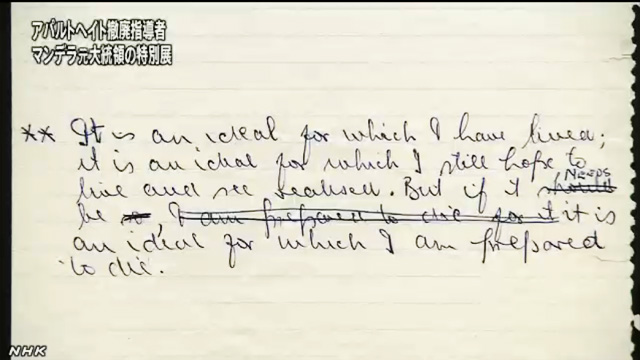 アパルトヘイト撤廃指導者
マンデラ元大統領の特別展
** It is an ideal for which I have lived;
it is an ideal for which I still hope to
live and see realised. But if it should NEEDS
be so, I am prepared to die for it it is
an ideal for which I am prepared
to die.
NHK